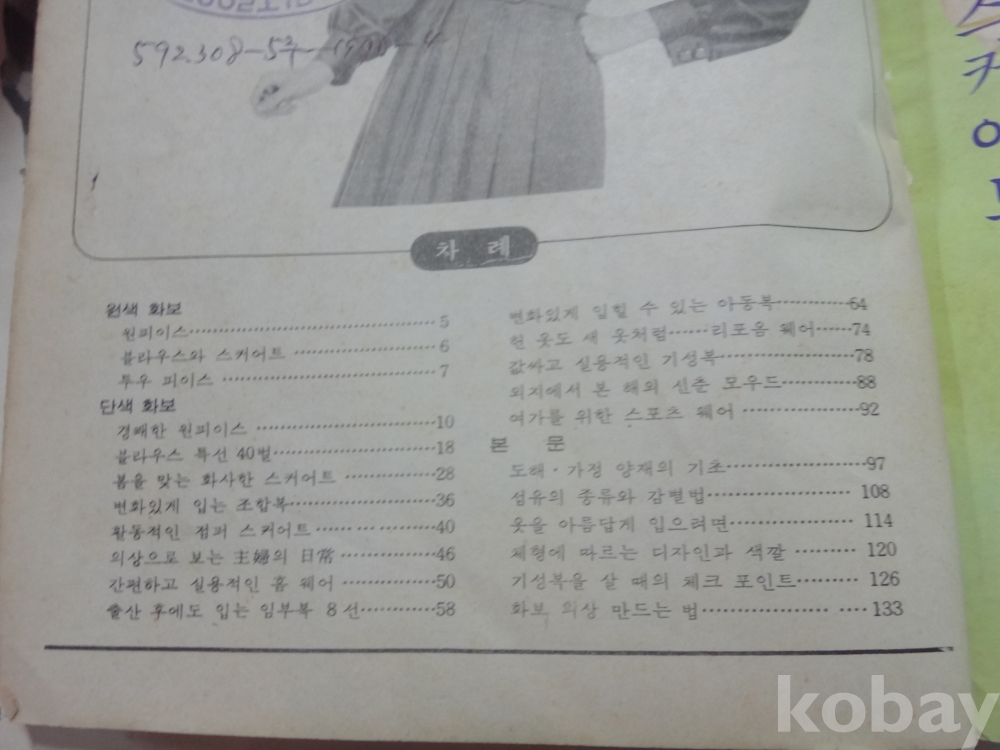 592.308-5
차 례
원색 화보
원피이스 5
블라우스와 스커어트 6
투우 피이스 7
단색 화보
경쾌한 원피이스 10
블라우스 특선 40벌 18
봄을 맞는 화사한 스커어트 28
변화있게 입는 조합복 36
활동적인 점퍼 스커어트 40
의상으로 보는 主婦의 日常 46
간편하고 실용적인 홈 웨어 50
출산 후에도 입는 임부복 8선 58
변화있게 입힐 수 있는 아동복 64
헌 옷도 새 옷처럼……리포옴 웨어 74
값싸고 실용적인 기성복 78
외지에서 본 해외 신춘 모우드 88
여가를 위한 스포츠 웨어 92
본 문
도해·가정 양재의 기초 97
섬유의 종류와 감별법 108
옷을 아름답게 입으려면 114
체형에 따르는 디자인과 색깔 120
기성복을 살 때의 체크 포인트 126
화보 의상 만드는 법 133
kobay